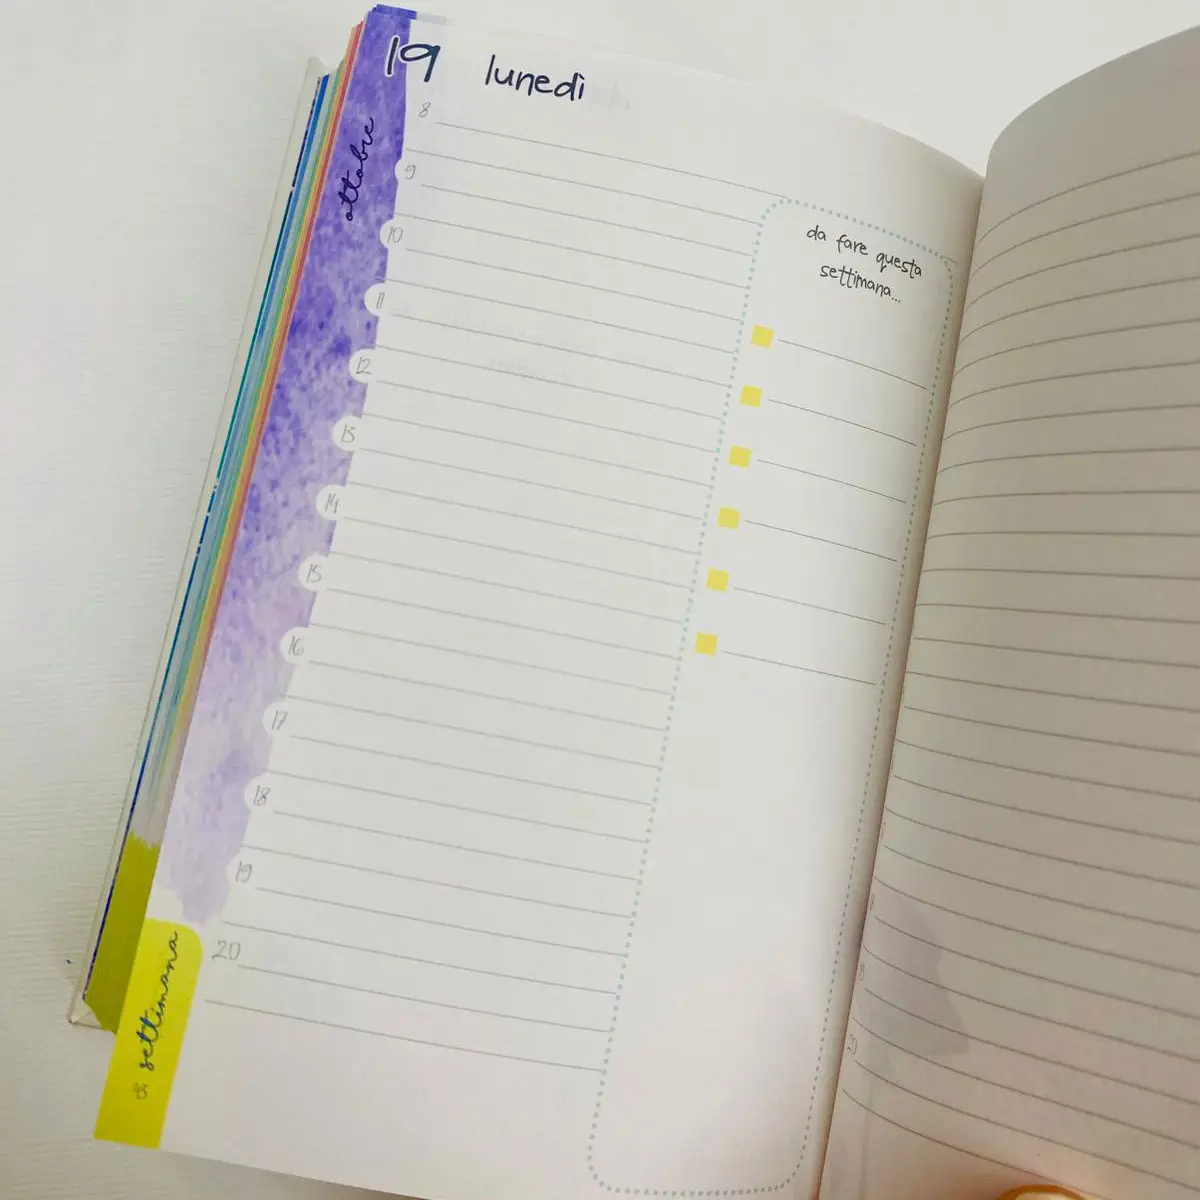 19 lunedì
ottobre
8
9
10
11
12
13
14
15
16
17
18
19
20
da fare questa
settimana...
settimana
20